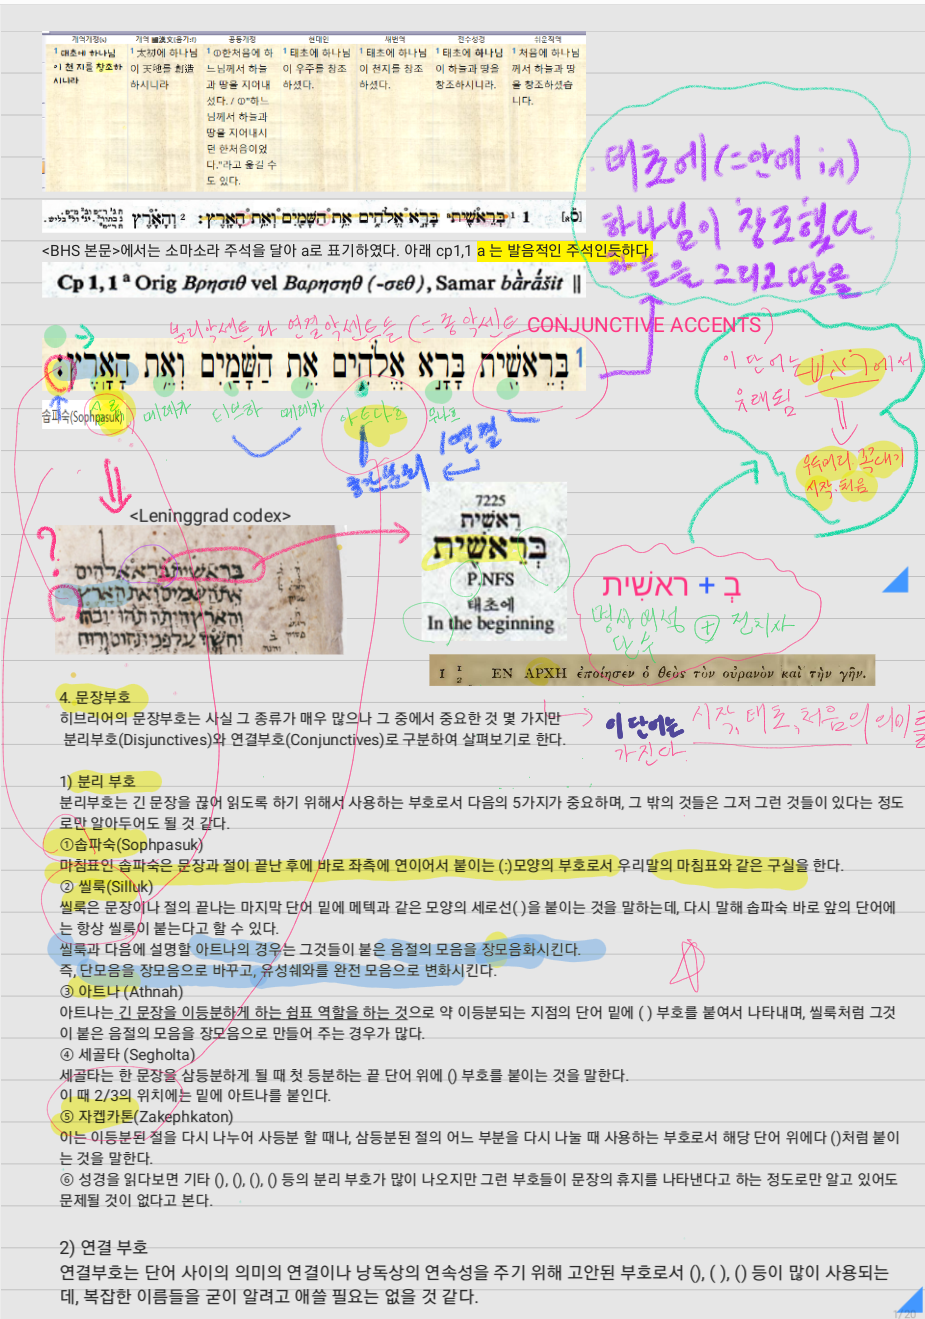 개역개정(4)
1 태초에 하나님
이 천지를 창조하
시니라
1 太初에 하나님
이 天地를 創造
하시니라
공동개정
1 ①한처음에 하
느님께서 하늘
과 땅을 지어내
셨다. / ①"하느
님께서 하늘과
땅을 지어내시
던 한처음이었
다."라고 옮길 수
도 있다.
현대인
1 태초에 하나님
이 우주를 창조
하셨다.
새번역
1 태초에 하나님
이 천지를 창조
하셨다.
전수성경
1 태초에 하나님
이 하늘과 땅을
창조하시니라.
쉬운직역
1 처음에 하나님
께서 하늘과 땅
을 창조하셨습
니다.
태초에(=안에 in)
하나님이 창조했다.
하늘을 그리고 땅을
1 1 בְּרֵאשִׁית בָּרָא אֱלֹהִים אֵת הַשָּׁמַיִם וְאֵת הָאָרֶץ׃ 2 וְהָאָרֶץ
<BHS 본문>에서는 소마소라 주석을 달아 a로 표기하였다. 아래 cp1,1 a 는 발음적인 주석인듯하다.
Cp 1,1 a Orig Βρησιθ vel Βαρησηθ (-σεθ), Samar bārāšit ||
분리악센트와 연결악센트들 (= 종악센트 CONJUNCTIVE ACCENTS )
1 בְּרֵאשִׁית בָּרָא אֱלֹהִים אֵת הַשָּׁמַיִם וְאֵת הָאָרֶץ׃
솝파숙(Sophpasuk)
메테카
티프하
메테카
아트나흐
무나흐
분리
/연결
이 단어는
에서
유래됨
우두머리 꼭대기
시작·처음
<Leninggrad codex>
?
?
בראשית ברא אלהים
את השמים ואת הארץ
והארץ היתה תהו ובהו
וחשך על פני תהום ורוח
7225
רֵאשִׁית
בְּרֵאשִׁית
P.NFS
태초에
In the beginning
בְ + ראשׁית
명사 여성
단수
+ 전치사
1 1 2 ΕΝ ΑΡΧΗ ἐποίησεν ὁ θεὸς τὸν οὐρανὸν καὶ τὴν γῆν.
이 단어는 시작, 태초, 처음의 의미를
가진다.
4. 문장부호
히브리어의 문장부호는 사실 그 종류가 매우 많으나 그 중에서 중요한 것 몇 가지만
분리부호(Disjunctives)와 연결부호(Conjunctives)로 구분하여 살펴보기로 한다.
1) 분리 부호
분리부호는 긴 문장을 끊어 읽도록 하기 위해서 사용하는 부호로서 다음의 5가지가 중요하며, 그 밖의 것들은 그저 그런 것들이 있다는 정도
로만 알아두어도 될 것 같다.
①솝파숙(Sophpasuk)
마침표인 솝파숙은 문장과 절이 끝난 후에 바로 좌측에 연이어서 붙이는 (:)모양의 부호로서 우리말의 마침표와 같은 구실을 한다.
② 씰룩(Silluk)
씰룩은 문장이나 절의 끝나는 마지막 단어 밑에 메텍과 같은 모양의 세로선( )을 붙이는 것을 말하는데, 다시 말해 솝파숙 바로 앞의 단어에
는 항상 씰룩이 붙는다고 할 수 있다.
씰룩과 다음에 설명할 아트나의 경우는 그것들이 붙은 음절의 모음을 장모음화시킨다.
즉, 단모음을 장모음으로 바꾸고, 유성쉐와를 완전 모음으로 변화시킨다.
③ 아트나 (Athnah)
아트나는 긴 문장을 이등분하게 하는 쉼표 역할을 하는 것으로 약 이등분되는 지점의 단어 밑에 ( ) 부호를 붙여서 나타내며, 씰룩처럼 그것
이 붙은 음절의 모음을 장모음으로 만들어 주는 경우가 많다.
④ 세골타 (Segholta)
세골타는 한 문장을 삼등분하게 될 때 첫 등분하는 끝 단어 위에 () 부호를 붙이는 것을 말한다.
이 때 2/3의 위치에는 밑에 아트나를 붙인다.
⑤ 자켑카톤(Zakephkaton)
이는 이등분된 절을 다시 나누어 사등분 할 때나, 삼등분된 절의 어느 부분을 다시 나눌 때 사용하는 부호로서 해당 단어 위에다 ()처럼 붙이
는 것을 말한다.
⑥ 성경을 읽다보면 기타 (), (), (), () 등의 분리 부호가 많이 나오지만 그런 부호들이 문장의 휴지를 나타낸다고 하는 정도로만 알고 있어도
문제될 것이 없다고 본다.
2) 연결 부호
연결부호는 단어 사이의 의미의 연결이나 낭독상의 연속성을 주기 위해 고안된 부호로서 (), ( ), () 등이 많이 사용되는
데, 복잡한 이름들을 굳이 알려고 애쓸 필요는 없을 것 같다.
1/20